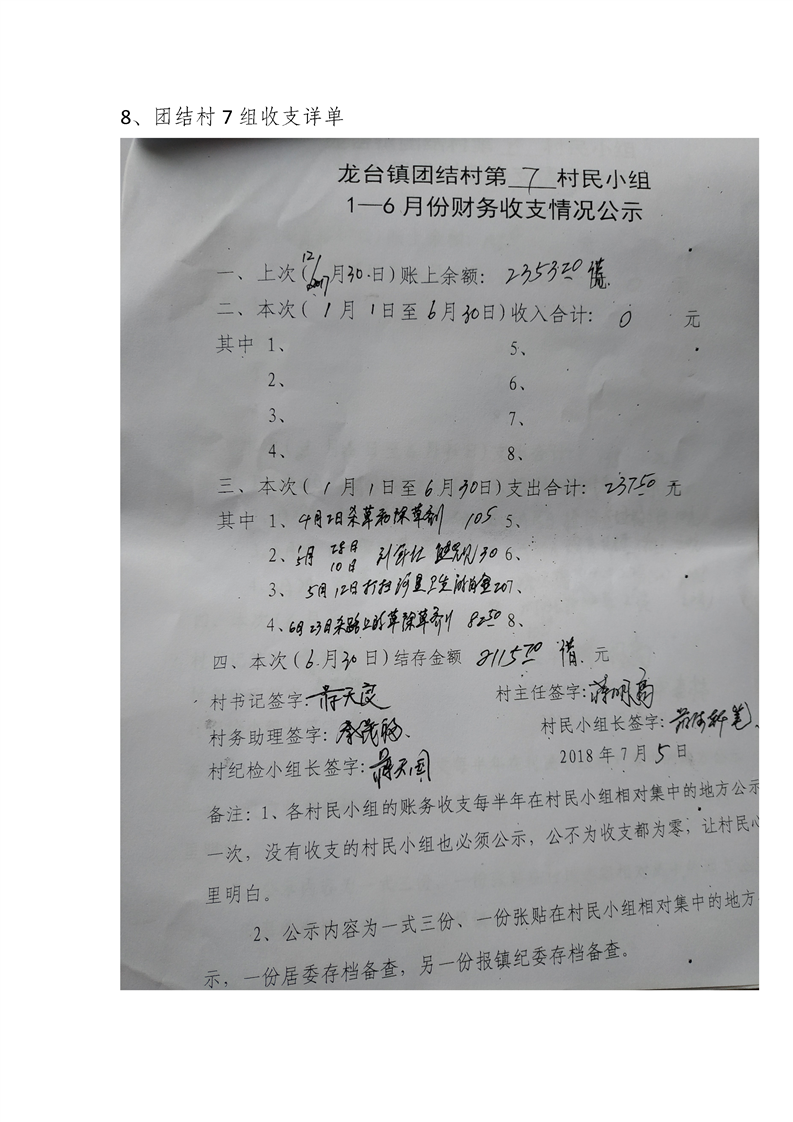 8、团结村 7 组收支详单
龙台镇团结村第 7 村民小组
1—6 月份财务收支情况公示
一、上次(12月30日)账上余额：
二、本次( 1 月 1日至 6月30日)收入合计： 0 元
其中 1、 5、
2、 6、
3、 7、
4、 8、
三、本次( 1 月 1日至6月30日)支出合计： 元
其中 1、4月2日杀草 除草剂 105 5、
2、5月 28日 10日 130 6、
3、 5月12日打扫河 卫生 7、
4、6月23日杀路上的草除草剂 8250 8、
四、本次(6月30日)结存金额 借 元
村书记签字: 村主任签字:蒋明高
村务助理签字: 村民小组长签字:
村纪检小组长签字:蒋天国 2018 年 7 月 5 日
备注：1、各村民小组的账务收支每半年在村民小组相对集中的地方公示
一次，没有收支的村民小组也必须公示，公不为收支都为零，让村民心
里明白。
2、公示内容为一式三份、一份张贴在村民小组相对集中的地方
示，一份居委存档备查，另一份报镇纪委存档备查。